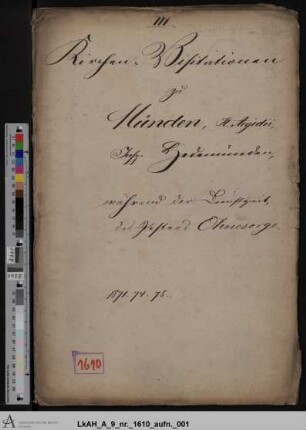 III.
Kirchen-Visitationen
zu
Münden, St. Aegidii,
Insp. Hedemünden,
während der Dienstzeit
des Pastors Ohnesorge
1871. 74. 75.
1610
LkAH_A_9_nr._1610_aufn._001